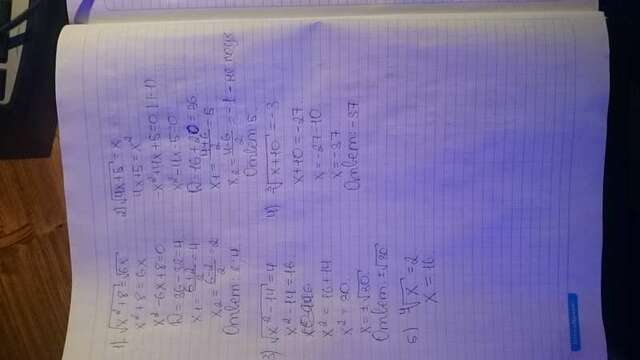 1) √x²+8 = √6x
x²+8 = 6x
x²-6x+8=0
D=36-32=4
x₁=(6+2)/2=4
x₂=(6-2)/2=2
Ответ: 2; 4
2) √4x+5 = x
4x+5=x²
-x²+4x+5=0 | (-1)
x²-4x-5=0
D=16+20=36
x₁=(4+6)/2=5
x₂=(4-6)/2=-1 - не подх
Ответ: 5
3) √x²-14 = 4
x²-14=16
x²=16+14
x²=30
x=±√30
Ответ: ±√30
4) ³√x+10 = -3
x+10=-27
x=-27-10
x=-37
Ответ: -37
5) ⁴√x = 2
x = 16